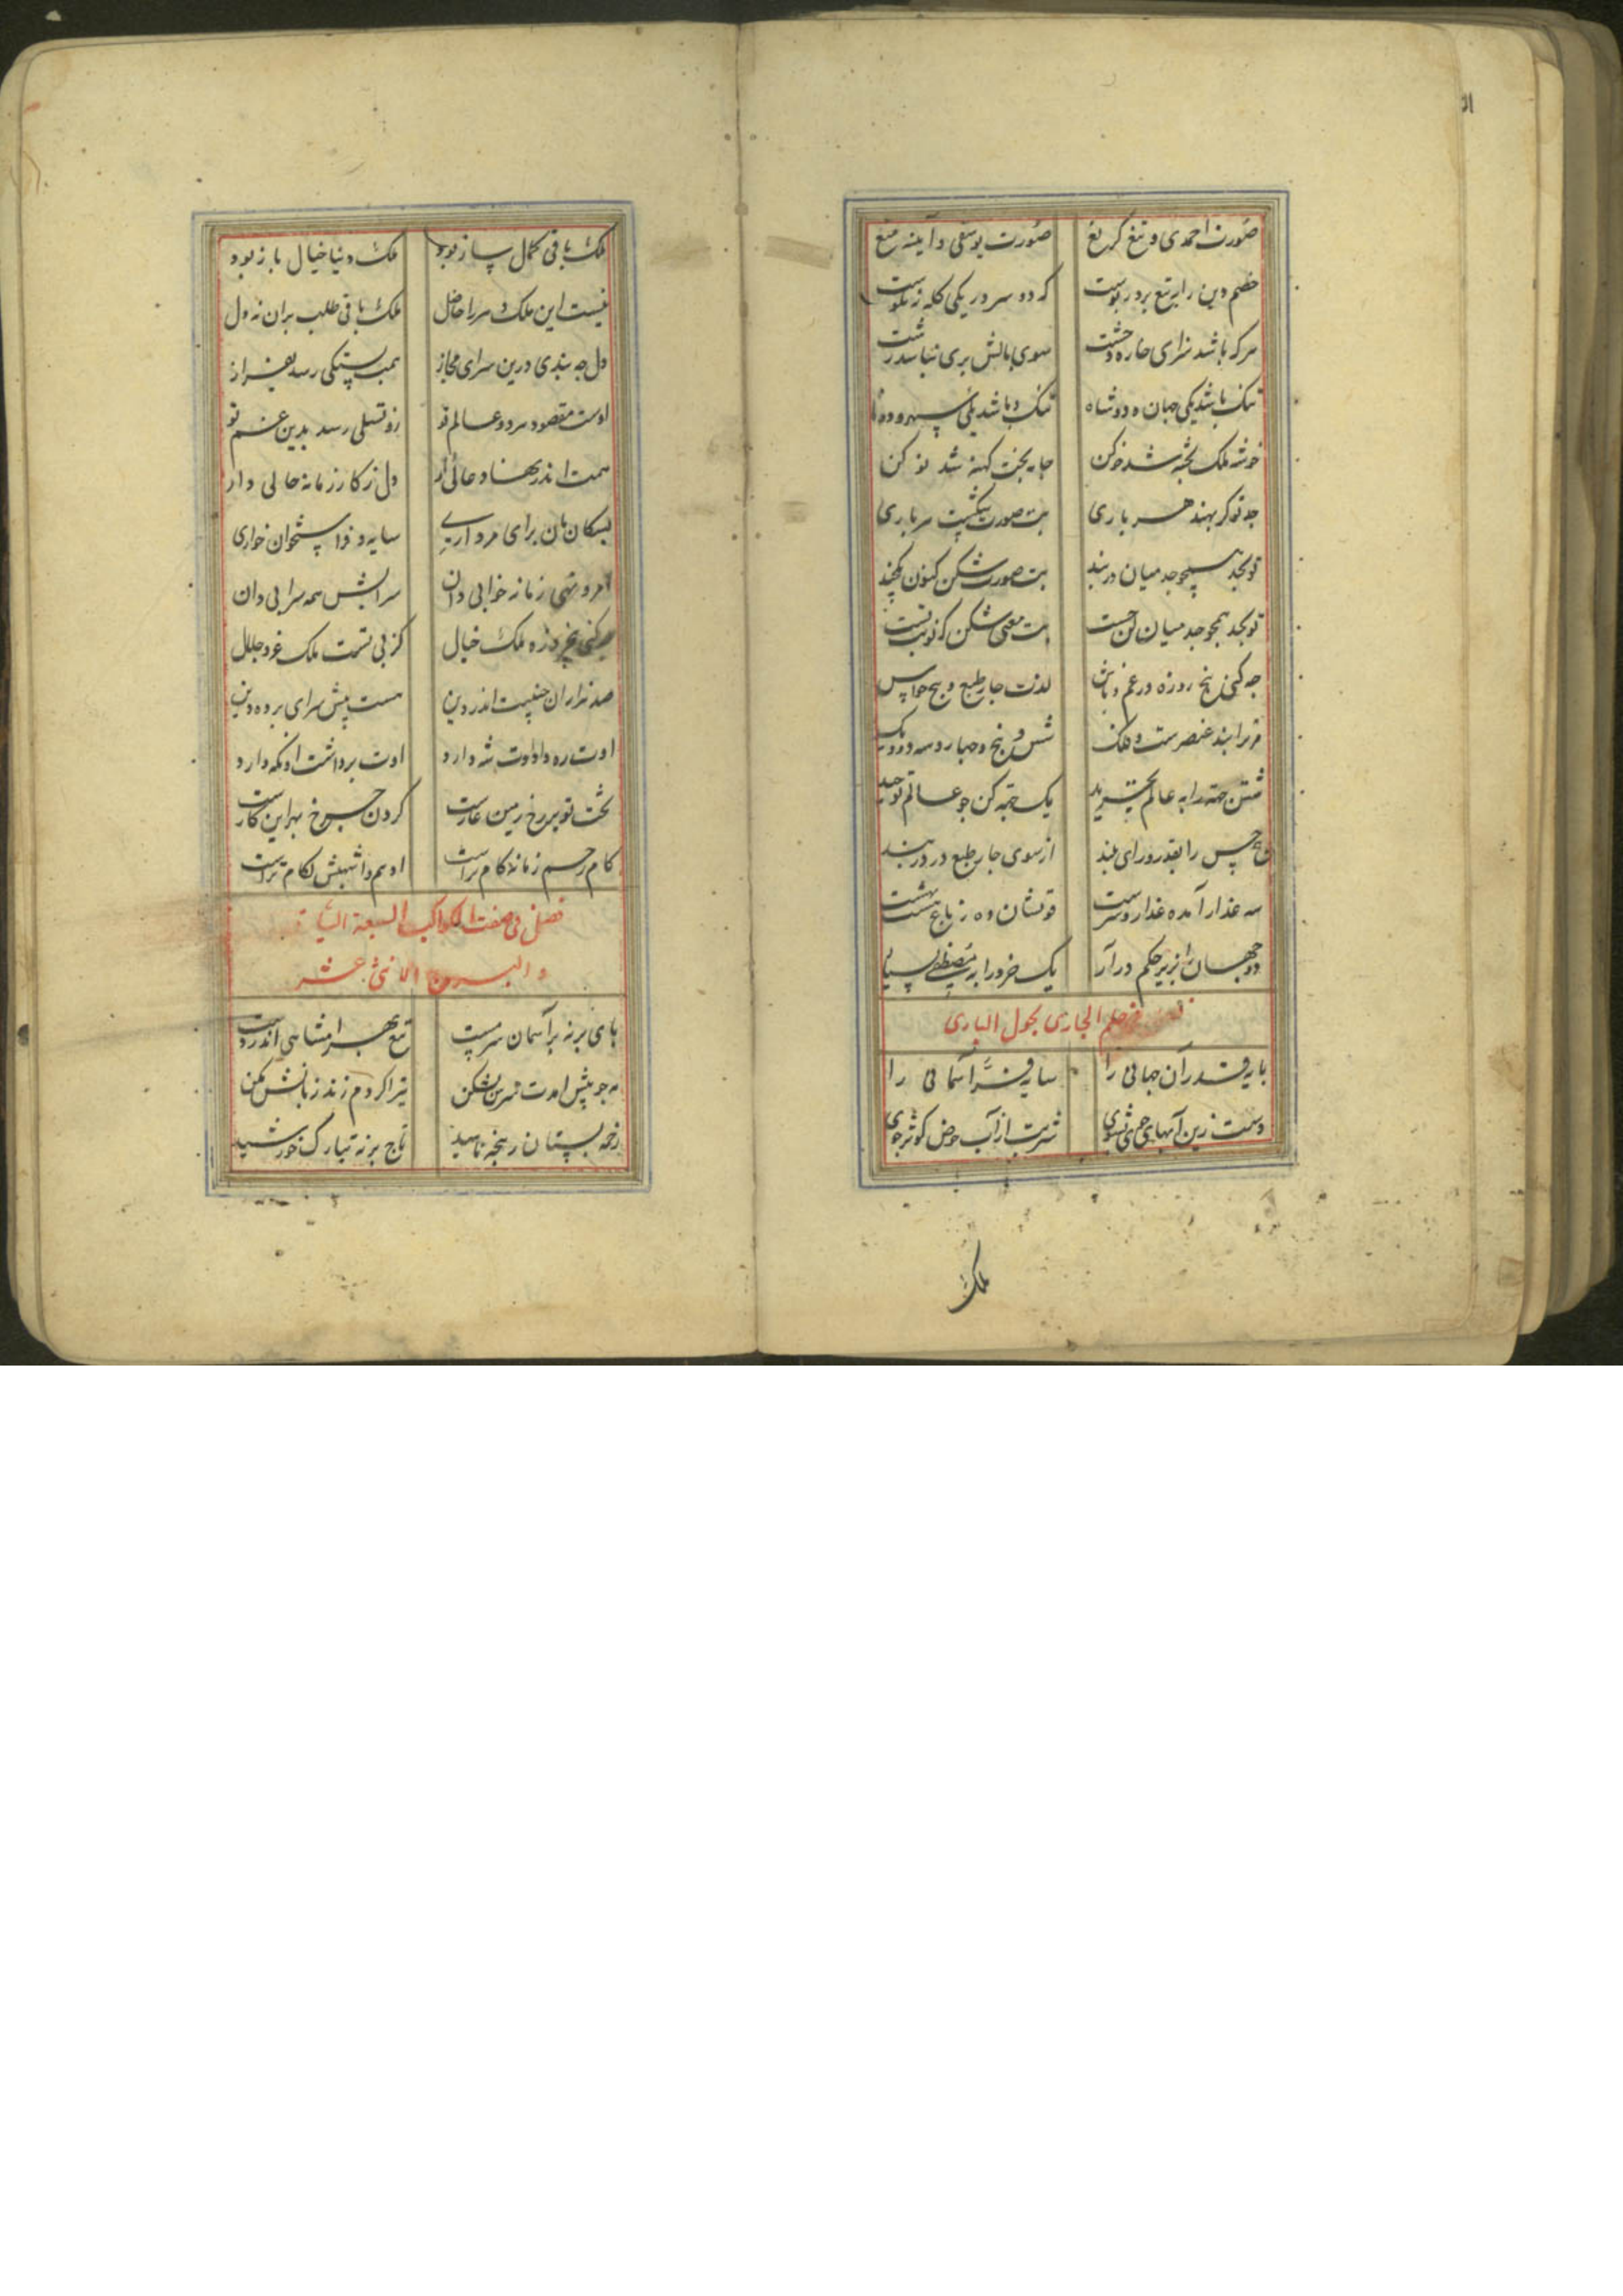 صورت احمدی و تیغ کریغ صورت یوسفی و آیینه میغ
خصم دین را بتیغ بردر پوست که دو سر در یکی کله نه نکوست
هرکه باشد سزای خاره و خشت سوی بالش بری نباشد زشت
تنک باشد یکی جهان و دو شاه تنک باشد یکی سپهر و دو ماه
خوشه ملک پخته شد خو کن جامه بخت کهنه شد نو کن
جد تو کر بهند هر باری بت صورت شکست سرباری
تو بجد همچو جد میان دربند بت صورت شکن کنون یکچند
تو بجد همچو جد میان کن چست بت معنی شکن که نوبت تست
چه کنی پنج روزه در غم و لذت چار طبع و پنج حواس
مر ترا بند عنصرست و فلک شش و پنج و چهار و سه و دو و یک
شش جهت را به عالم تجرید یک جهت کن چو عالم توحید
پنج حس را بقدر و رای بلند از سوی چار طبع در دربند
سه عذار آمده غدار و سرست تو نشان ده ز باغ هشت بهشت
دو جهان را بزیر حکم درآر یک خرد را به مصطفی بسپار
الجاری بحول الباری
پایه قدر آن جهانی را سایه فر آسمانی را
دست زین آبهای جوی بشوی شربت از آب حوض کوثر جوی
ملک
ملک باقی کمال ساز بود ملک دنیا خیال باز بود
نیست این ملک سر را حاصل ملک باقی طلب بران نه دل
دل چه بندی درین سرای مجاز همت پستکی رسد بفراز
اوست مقصود هر دو عالم تو زو تسلی رسد بدین غم تو
همت اندر نهاد عالی دار دل ز کار زمانه خالی دار
سکان نان برای مرداری سایه و فر استخوان خواری
امر و نهی زمانه خوابی دان سرابش همه سرابی دان
ملک خیال کز بی تست ملک عز و جلال
صد هزاران چنینت اندر دین هست پیش سرای پرده دین
اوت ره داد اوت شه دارد اوت برداشت او نکه دارد
تخت تو بر رخ زمین عارست کردن چرخ بهر این کارست
کام رسم زمانه کام تراست ادهم و اشهبش لکام تراست
فصل فی صفت الکواکب السبعة السیارة
و البروج الاثنی عشر
پای برنه بر آسمان سرمست تیغ بهرام شاهی اندر دست
مه چو پیش امدت سرین بشکن تیر اکر دم زند زبانش بکن
زخمه بستان ز پنجه ناهید تاج برنه بتارک خورشید